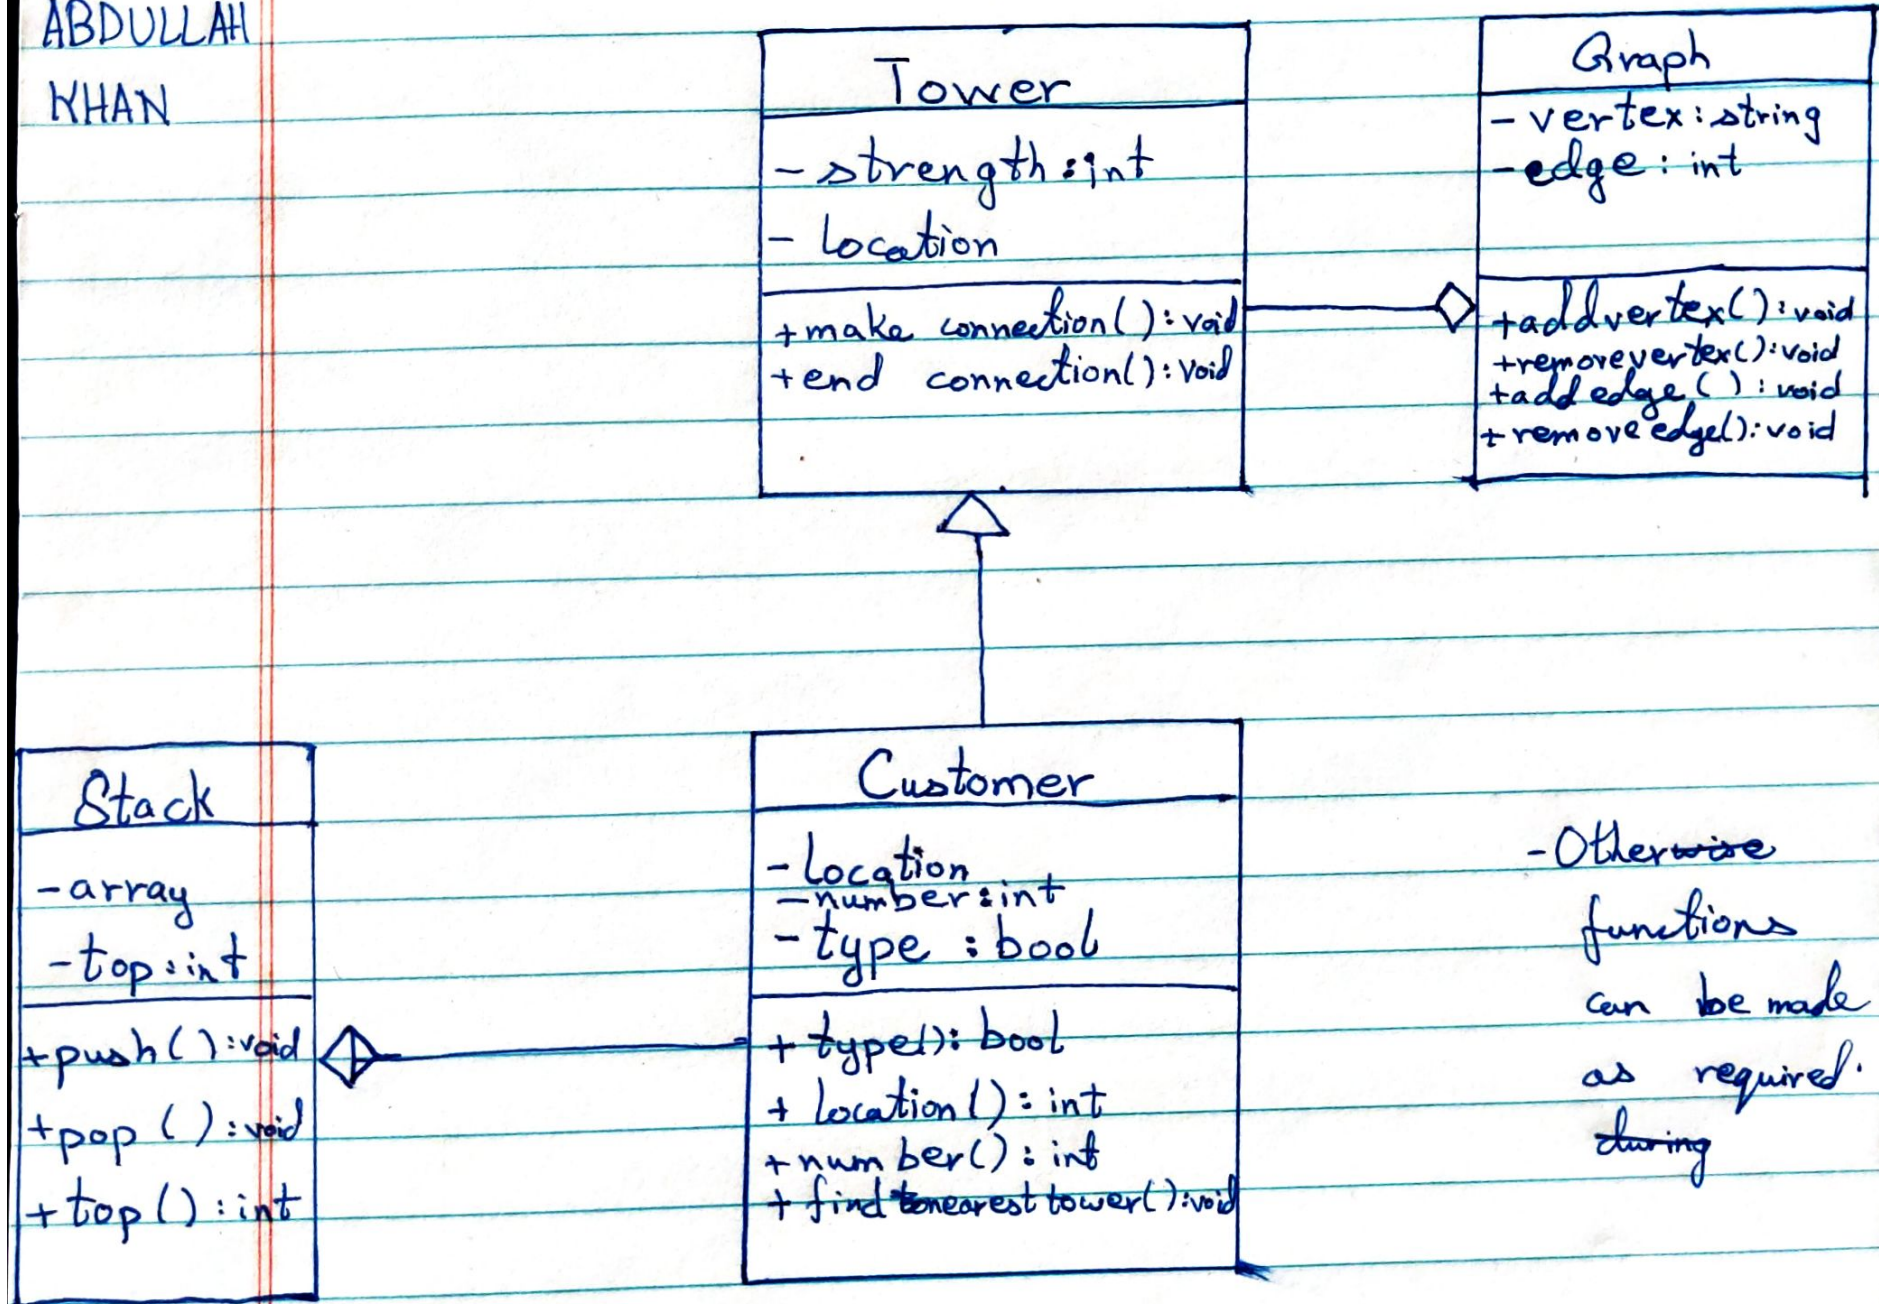 ABDULLAH
KHAN
Tower
- strength : int
- location
+ make connection() : void
+ end connection() : void
Graph
- vertex : string
- edge : int
+ addvertex() : void
+ removevertex() : void
+ add edge() : void
+ remove edge() : void
Stack
- array
- top : int
+ push() : void
+ pop() : void
+ top() : int
Customer
- location
- number : int
- type : bool
+ type() : bool
+ location() : int
+ number() : int
+ find nearest tower() : void
- Otherwise
functions
can be made
as required.
during